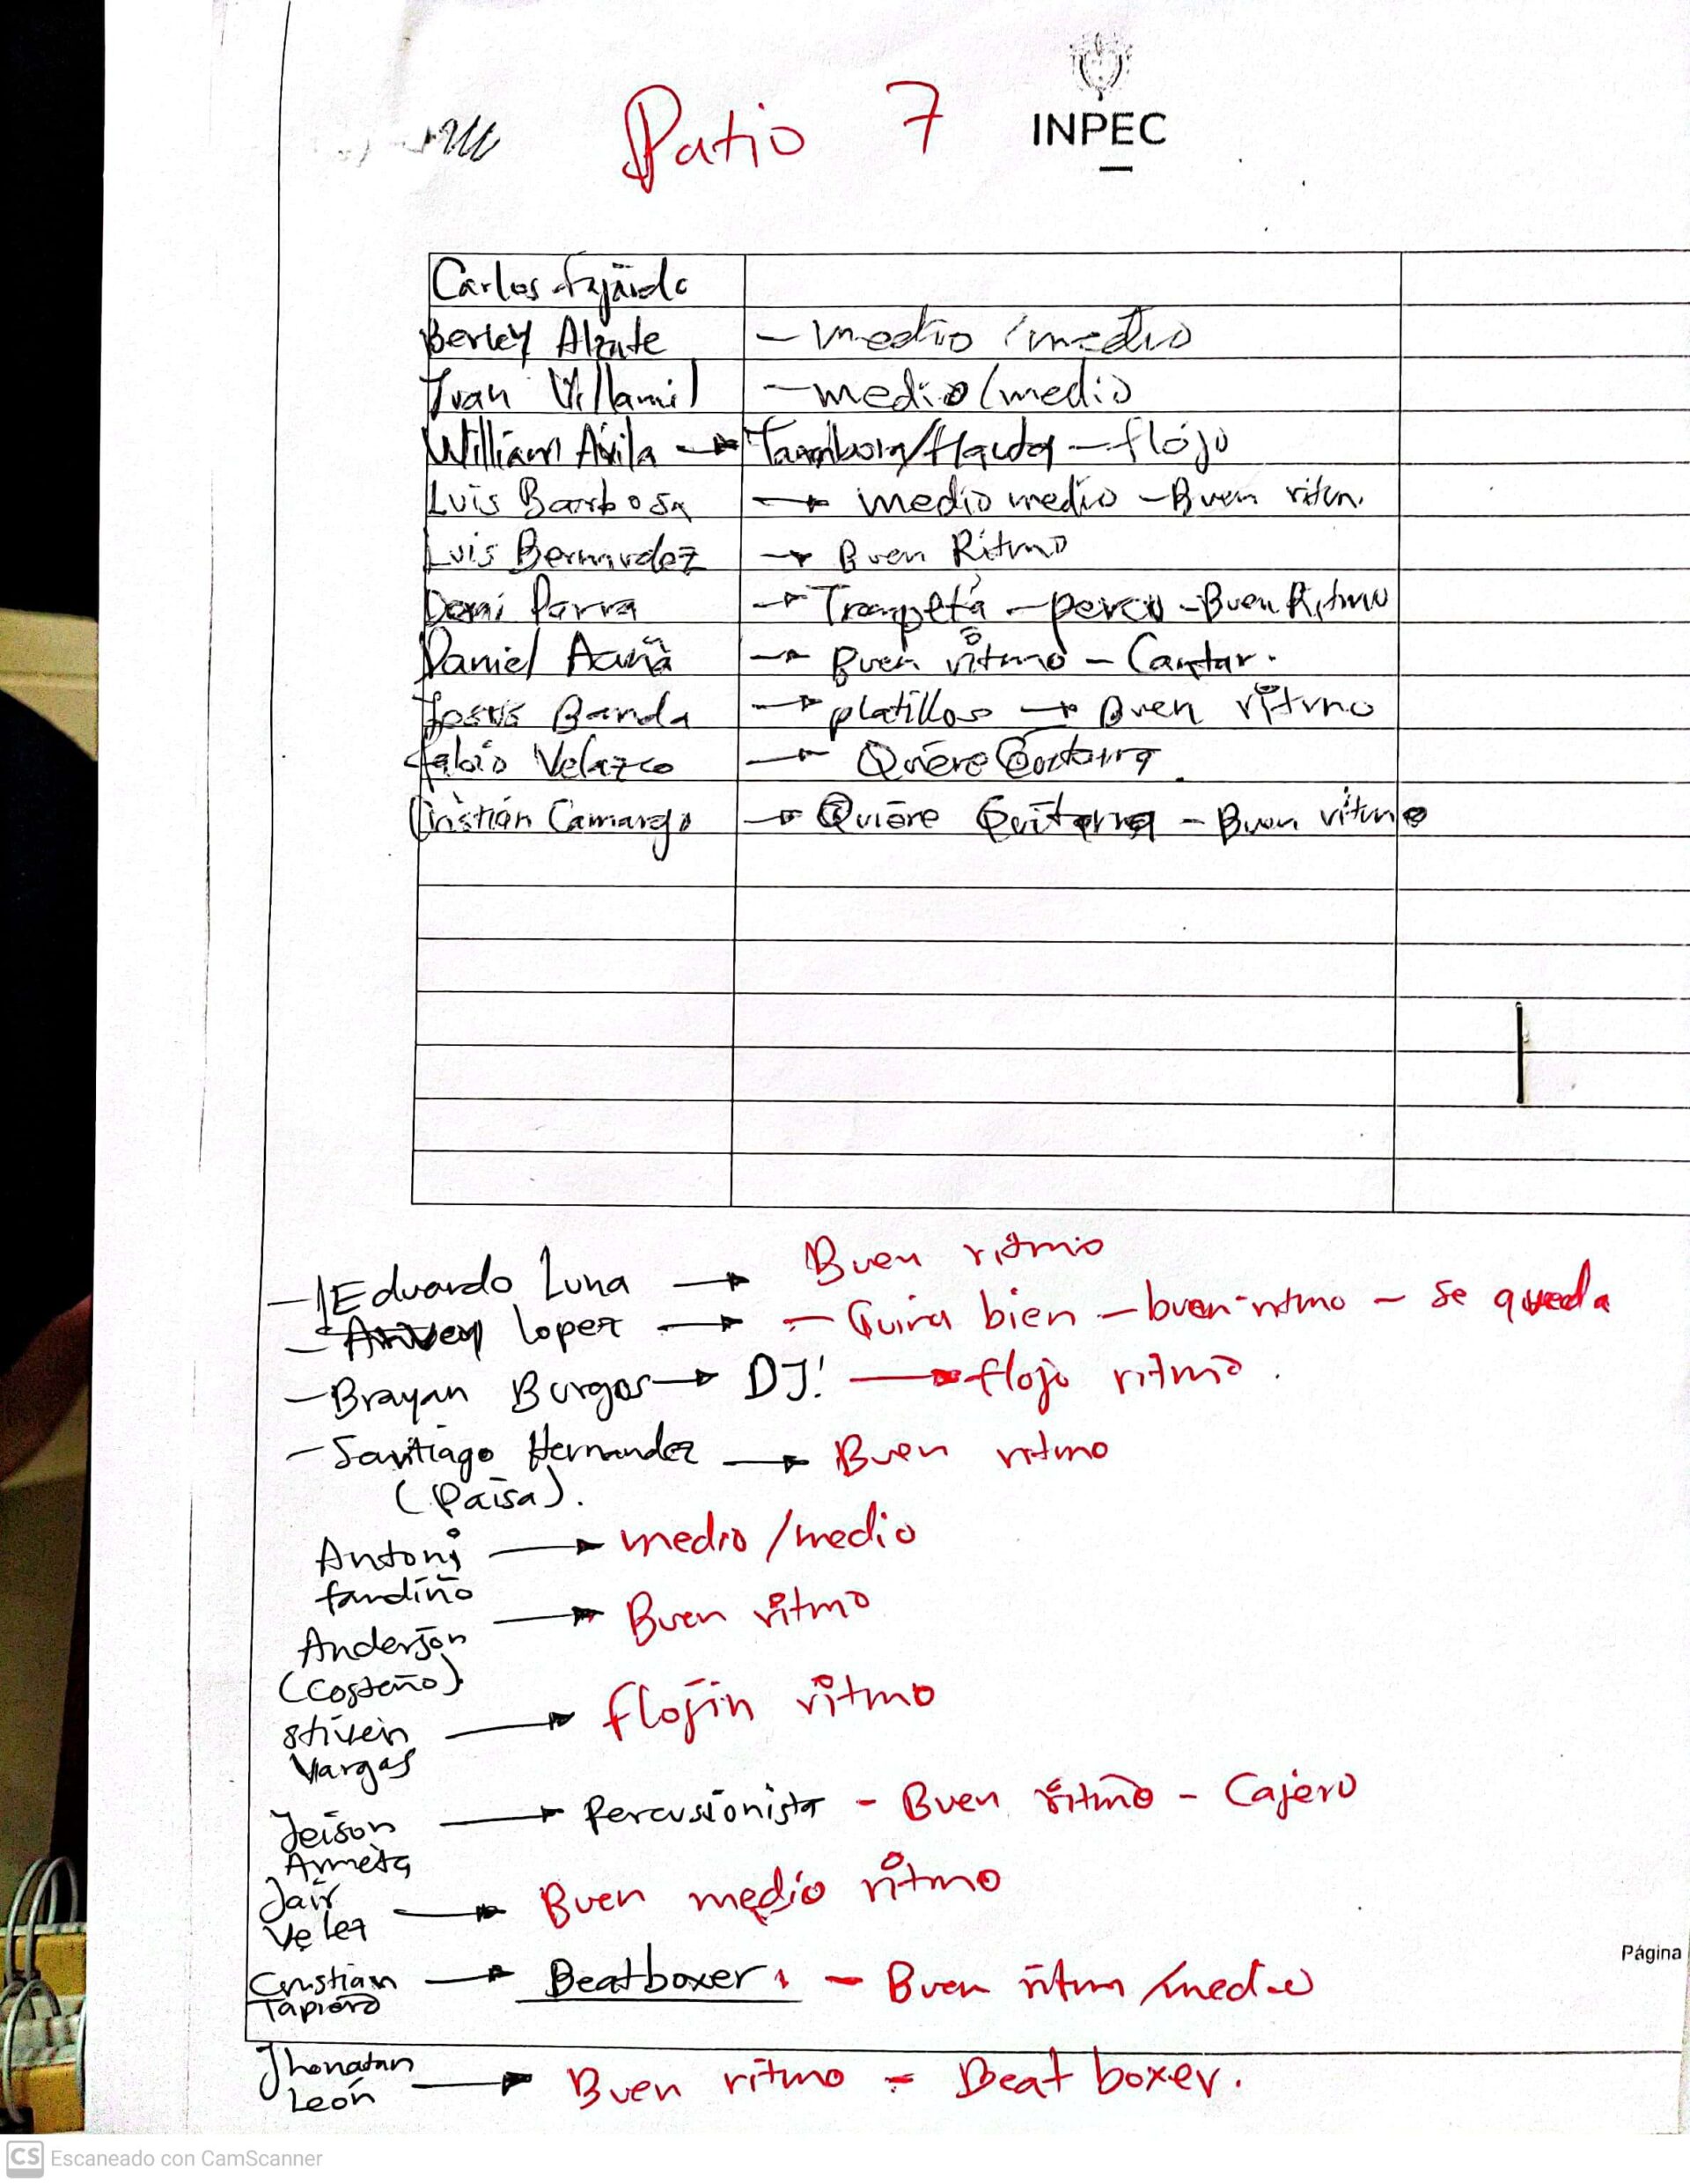 Patio 7
INPEC
Carlos Fajardo
Berley Alzate - medio / medio
Ivan Villamil - medio / medio
William Avila → Tambora/Flauta - flojo
Luis Barbosa → medio medio - Buen ritm.
Luis Bermudez → Buen Ritmo
Deni Parra → Trompeta - percu - Buen Ritmo
Daniel Acuña → Buen ritmo - Cantar.
Jesus Banda → platillos → Buen ritmo
Fabio Velazco → Quiere Guitarra.
Cristian Camargo → Quiere Guitarra - Buen ritmo
- Eduardo Luna → Buen ritmio
- Lopez → - Guira bien - buen ritmo - se queda
- Brayan Burgos → DJ! → flojo ritmo.
- Santiago Hernandez → Buen ritmo
(Paisa).
Antoni → medio / medio
fandiño
Anderson → Buen ritmo
(Costeño)
Stiven → flojin ritmo
Vargas
Jeison → Percusionista - Buen ritmo - Cajero
Armeta
Jair → Buen medio ritmo
Velez
Cristian → Beatboxer - Buen ritm /medio
Tapiero
Página
Jhonatan → Buen ritmo - Beat boxer.
León
CS Escaneado con CamScanner